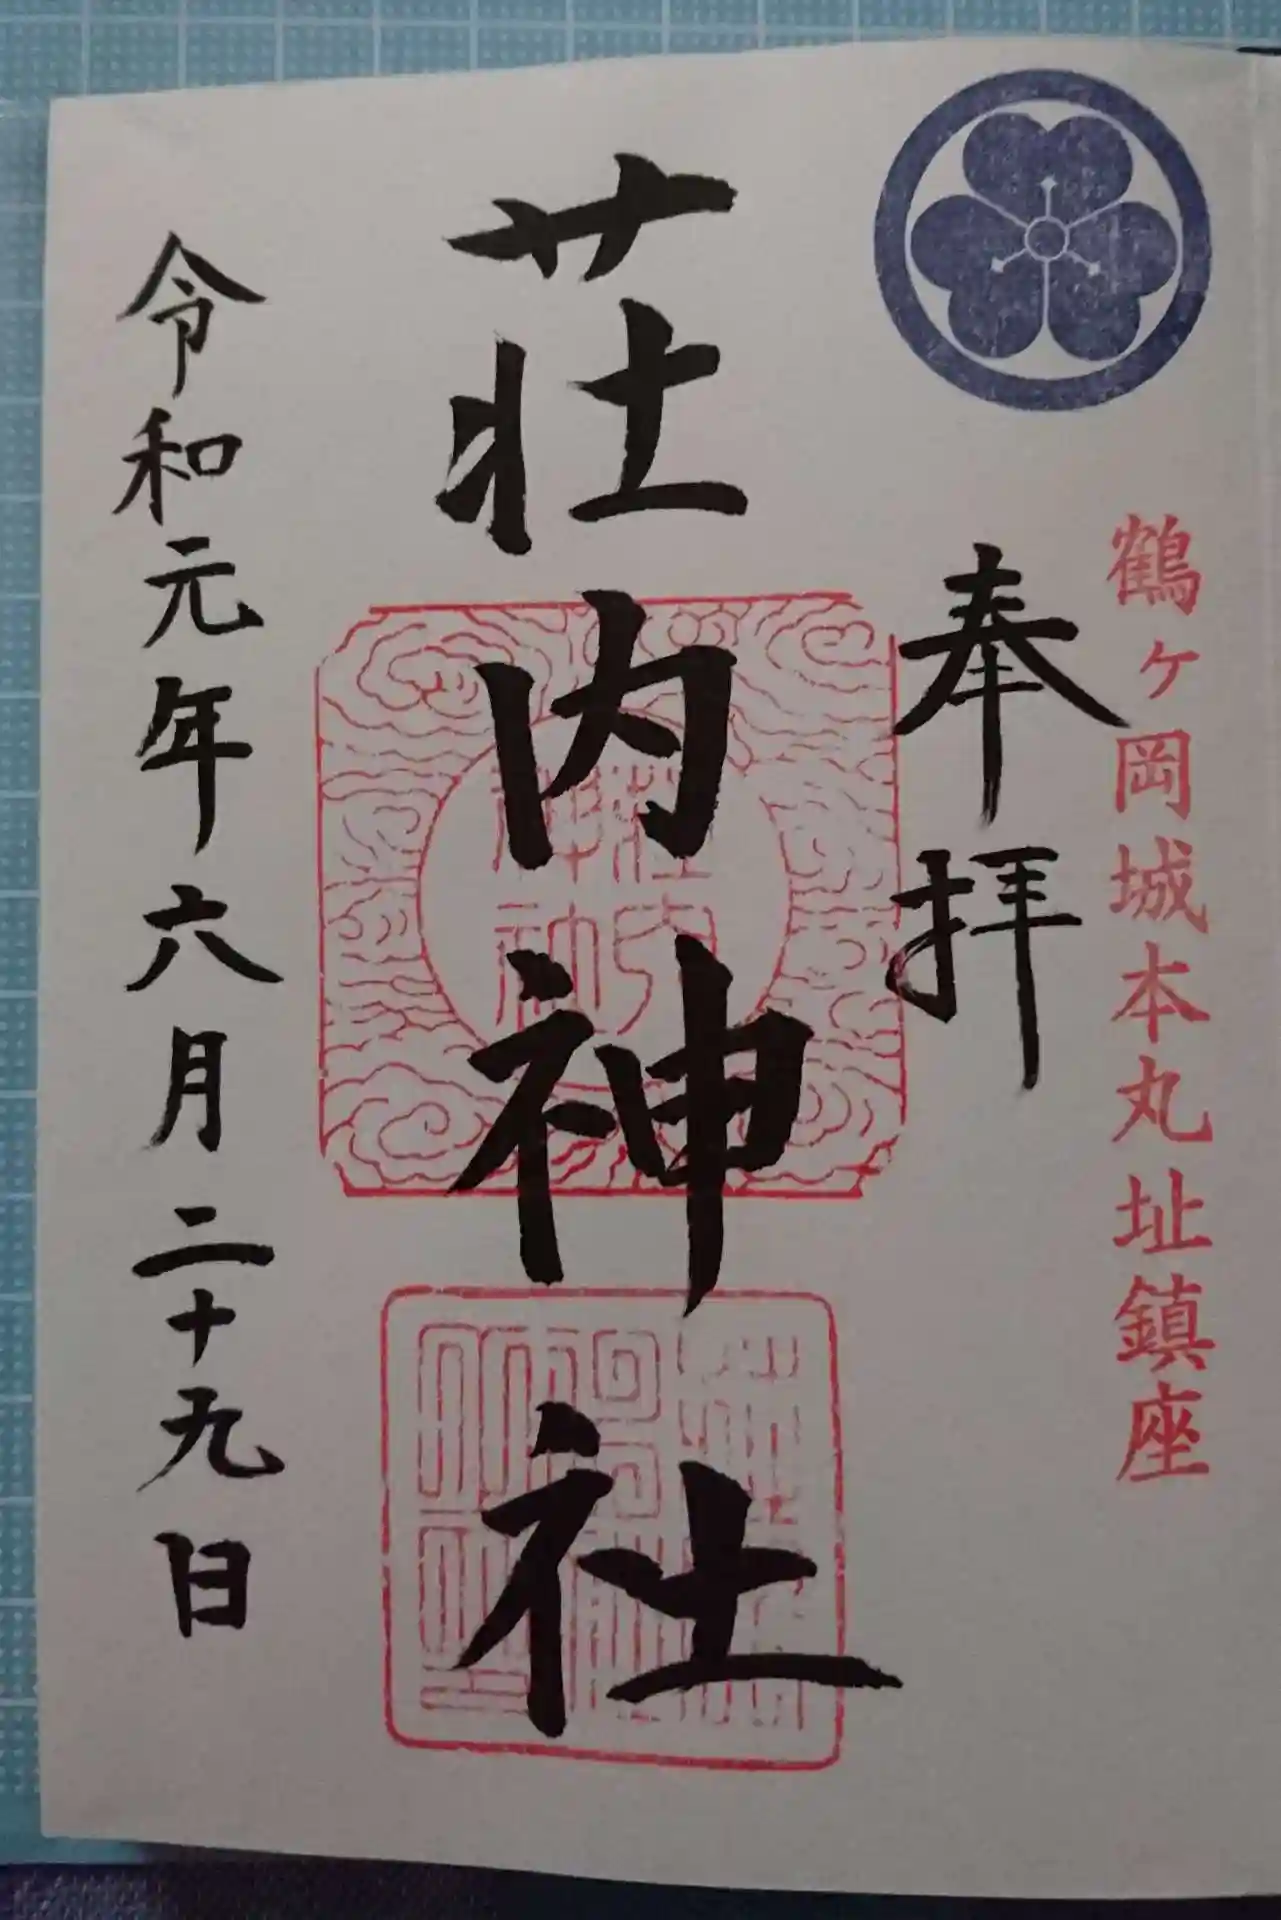 鶴ヶ岡城本丸址鎮座
奉拝
荘内神社
令和元年六月二十九日
荘内
神社